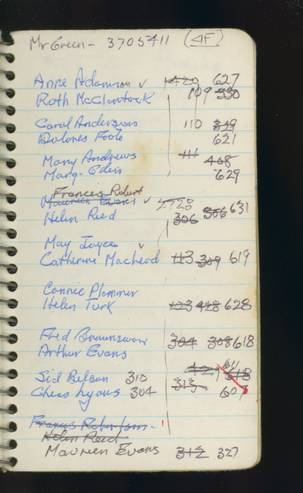 Mr Green - 3705411 (JF)
Anne Adamson ✓ 1420 627
Ruth McClintock 109 530
Carol Anderson 110 349
Dolores Foote 621
Mary Andrews 111 468
Marg. Odein 629
Frances Robert
Maureen Evans ✓ 1120
Helen Reed 306 506 631
May Joyce ✓
Catherine MacLeod 113 309 619
Connie Plummer
Helen Turk 123 418 628
Fred Brownsword 304 308 618
Arthur Evans
Sid Belson 310
Chess Lyons 304 313 607
Francis Robertson -
Helen Reed
Maureen Evans 312 327